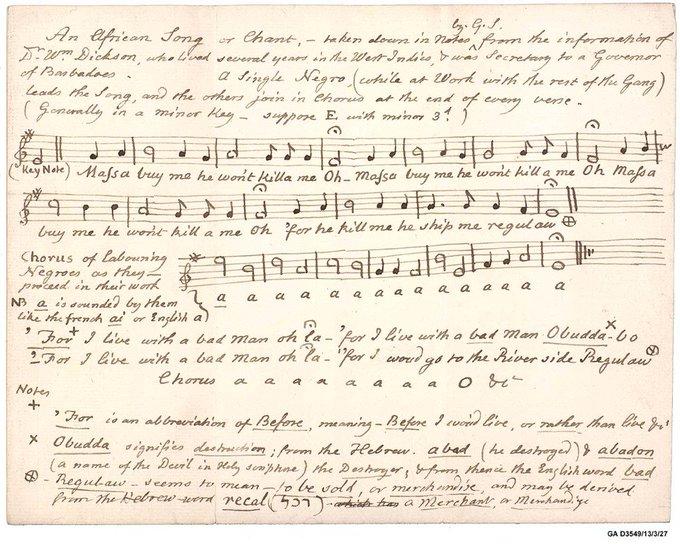 by G.S.
An African Song or Chant, – taken down in Notes ^ from the information of
Dr. Wm. Dickson, who lived several years in the West Indies, & was Secretary to a Governor
of Barbadoes. A Single Negro, (while at Work with the rest of the Gang)
leads the Song, and the others join in Chorus at the end of every verse.
(Generally in a minor Key – suppose E with minor 3d.)
(Key Note) Massa buy me he won't killa me Oh – Massa buy me he won't kill a me Oh Massa
buy me he won't kill a me Oh 'for he kill me he ship me regulaw ⊕
Chorus of labouring
Negroes as they –
proceed in their work
a a a a a a a a a a a O
NB a is sounded by them
like the french ai or English a)
'For+ I live with a bad Man oh la – 'for I live with a bad Man Obudda x - bo
'For I live with a bad man oh la – 'for I wou'd go to the River side Regulaw ⊗
Chorus a a a a a a a a O &c
Notes
+ 'For is an abbreviation of Before, meaning – Before I wou'd live, or rather than live &c
x Obudda signifies destruction; from the Hebrew. abad (he destroyed) & abadon
(a name of the Devil in Holy scripture) the Destroyer; & from thence the English word bad
⊗ - Regulaw – seems to mean – to be sold, or merchandise, and may be derived
from the Hebrew word recal (רכל) – which has a Merchant, or Merchandize
GA D3549/13/3/27